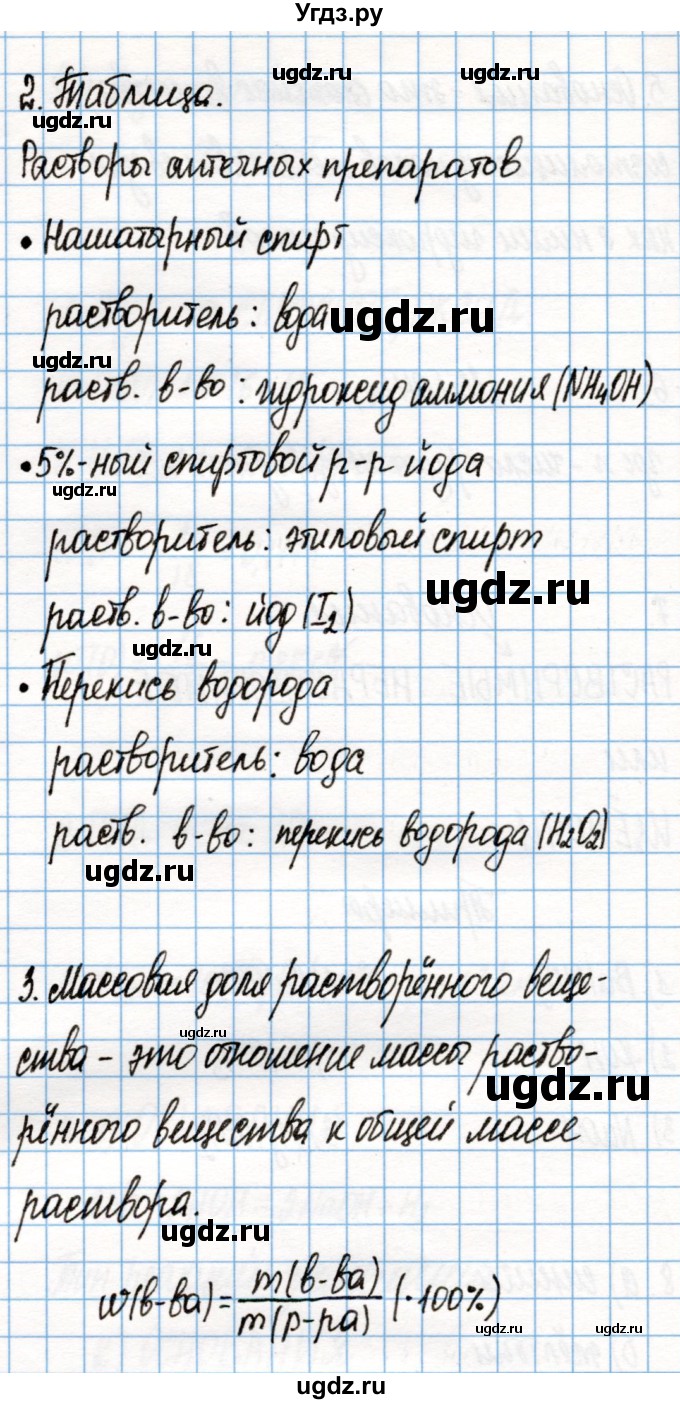 Угдз.ру
ugdz.ru
2. Таблица.
ugdz.ru
ugdz.ru
Растворы аптечных препаратов
• Нашатарный спирт
растворитель: вода
ugdz.ru
ugdz.ru
раств. в-во: гидроксид аммония (NH4OH)
• 5%-ный спиртовой р-р йода
ugdz.ru
растворитель: этиловый спирт
ugdz.ru
раств. в-во: йод (I2)
ugdz.ru
• Перекись водорода
растворитель: вода
ugdz.ru
раств. в-во: перекись водорода (H2O2)
ugdz.ru
3. Массовая доля растворённого веще-
ugdz.ru
ства - это отношение массы раство-
ugdz.ru
рённого вещества к общей массе
раствора.
ugdz.ru
w(в-ва) = m(в-ва) / m(р-ра) (·100%)
ugdz.ru
ugdz.ru
ugdz.ru